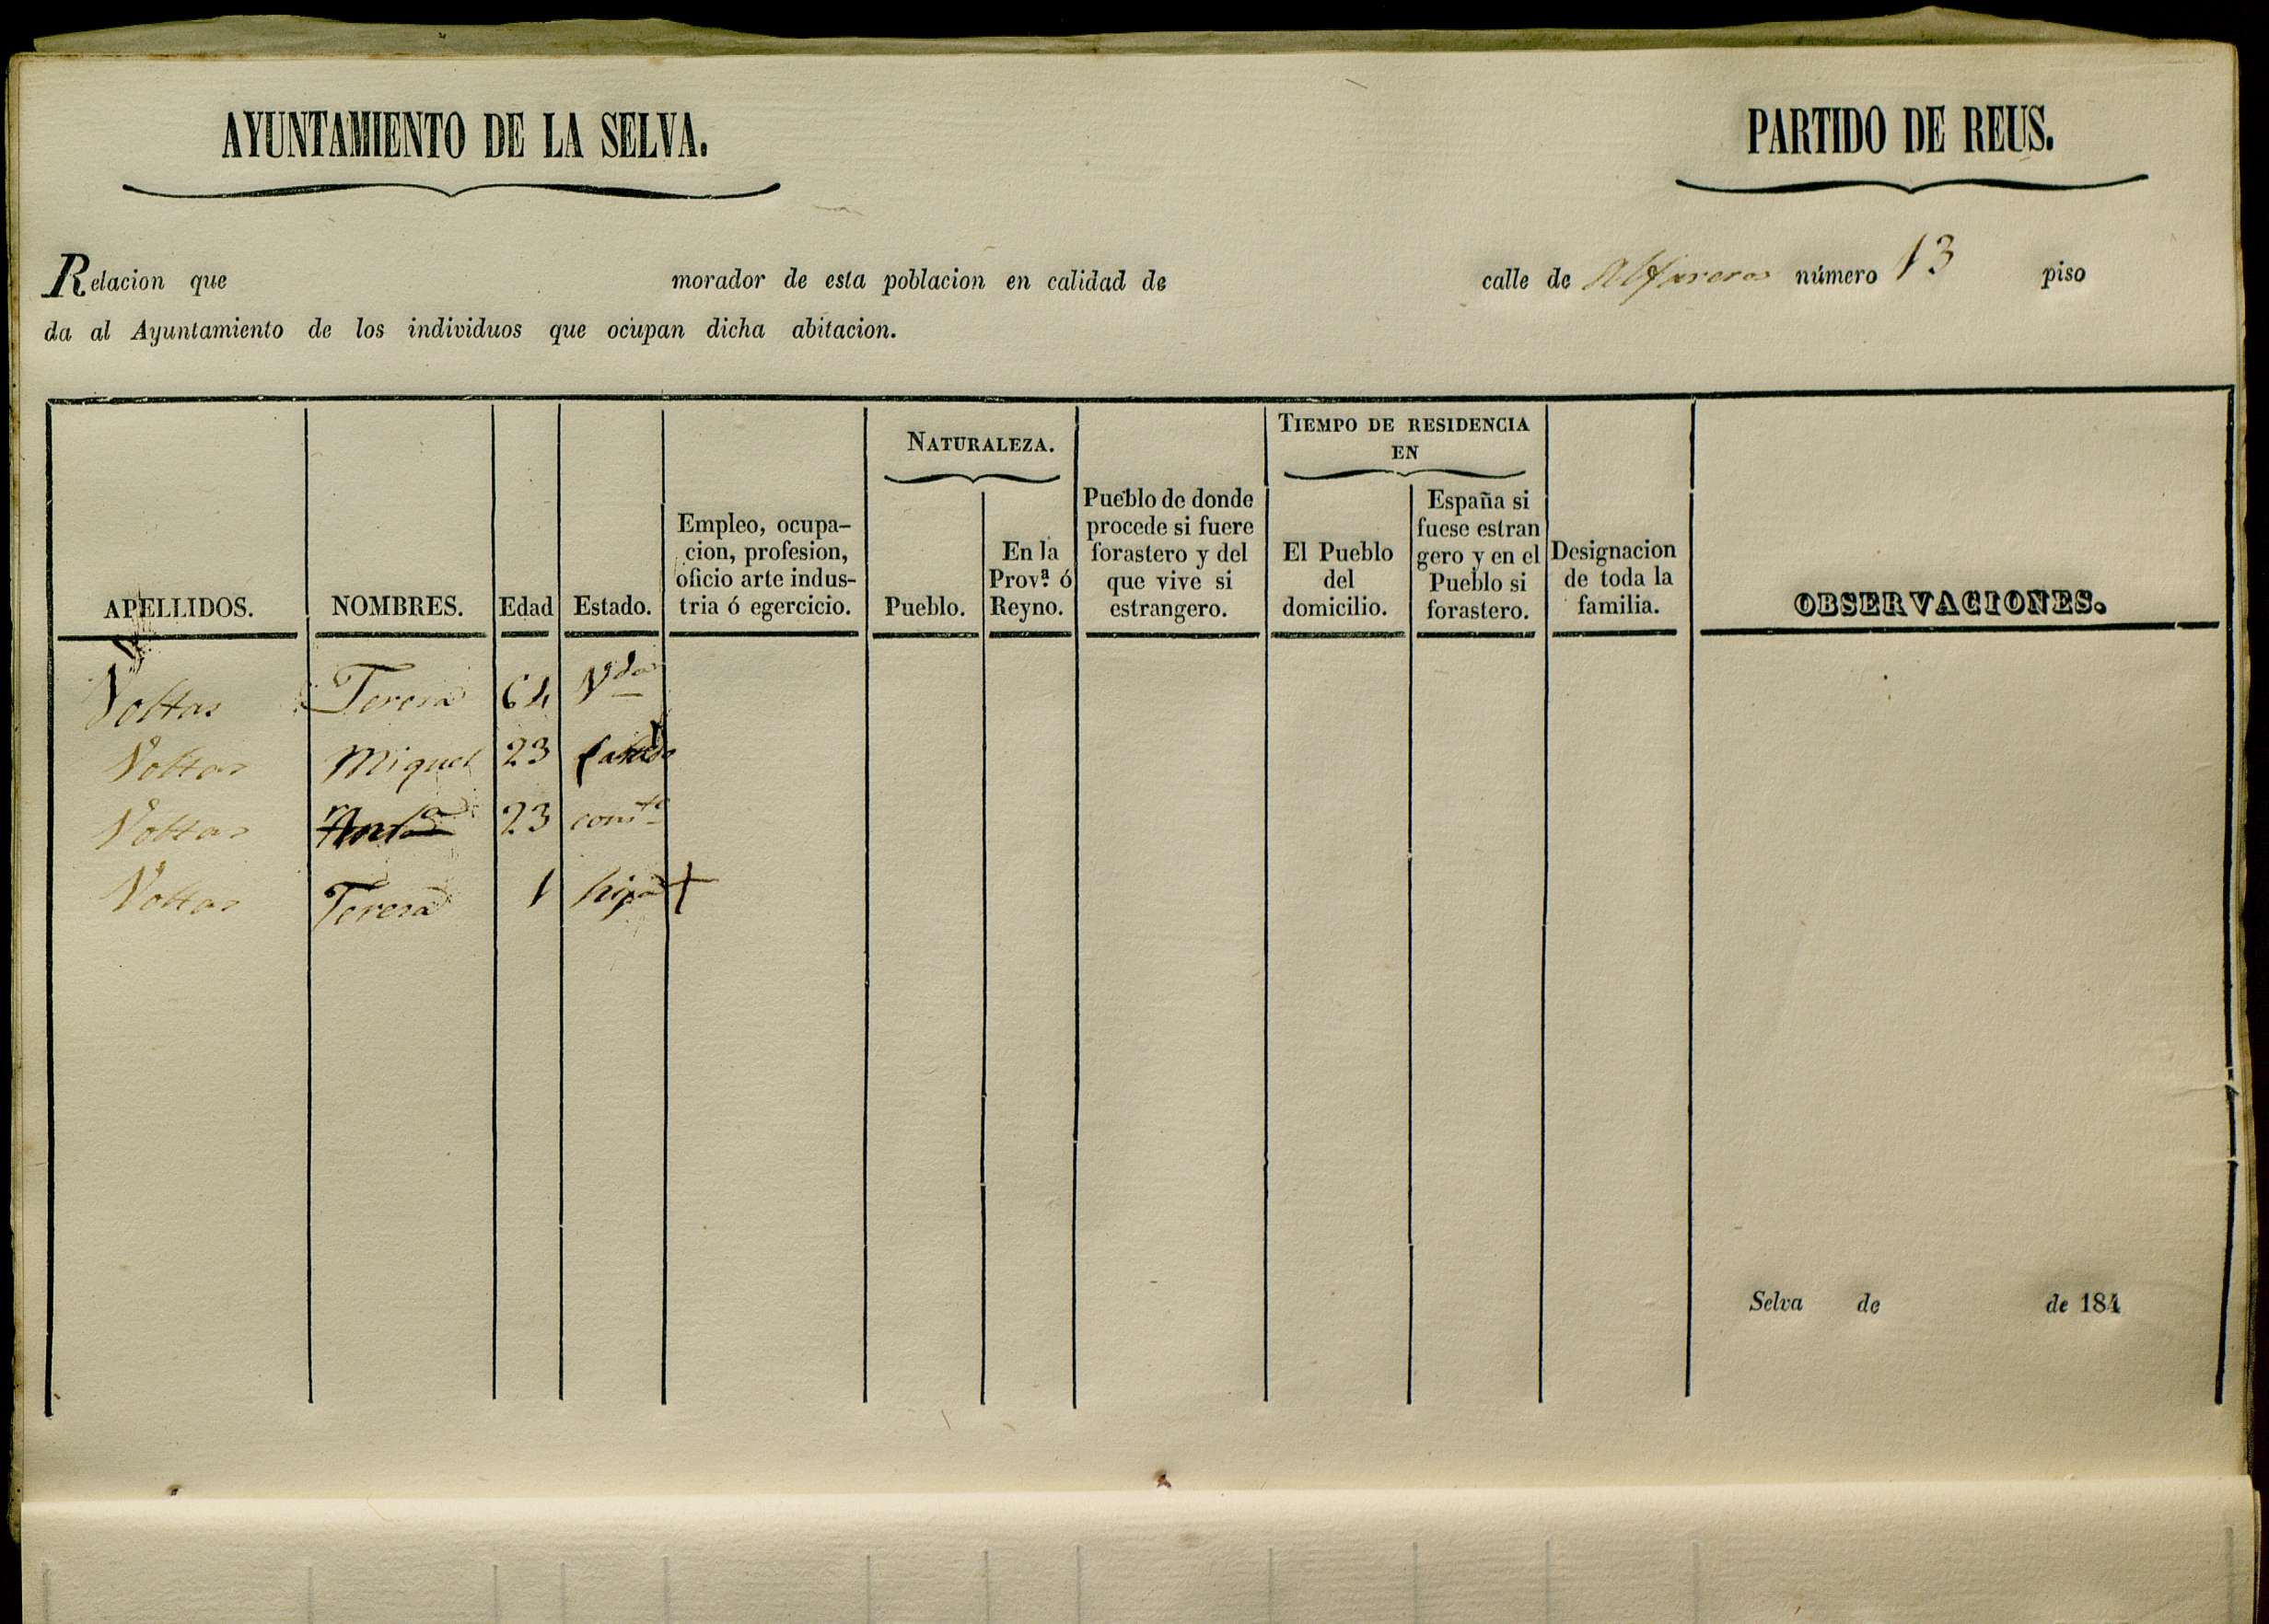 AYUNTAMIENTO DE LA SELVA.
PARTIDO DE REUS.
Relacion que morador de esta poblacion en calidad de calle de Alfareros número 13 piso
da al Ayuntamiento de los individuos que ocupan dicha abitacion.
APELLIDOS.
NOMBRES.
Edad
Estado.
Empleo, ocupa-
cion, profesion,
oficio arte indus-
tria ó egercicio.
NATURALEZA.
Pueblo.
En la
Prov.ª ó
Reyno.
Pueblo de donde
procede si fuere
forastero y del
que vive si
estrangero.
TIEMPO DE RESIDENCIA
EN
El Pueblo
del
domicilio.
España si
fuese estran
gero y en el
Pueblo si
forastero.
Designacion
de toda la
familia.
OBSERVACIONES.
Voltas Teresa 64 Vda
Voltas Miguel 23
Voltas Anta 23 conte
Voltas Teresa 1 hija +
Selva de de 184